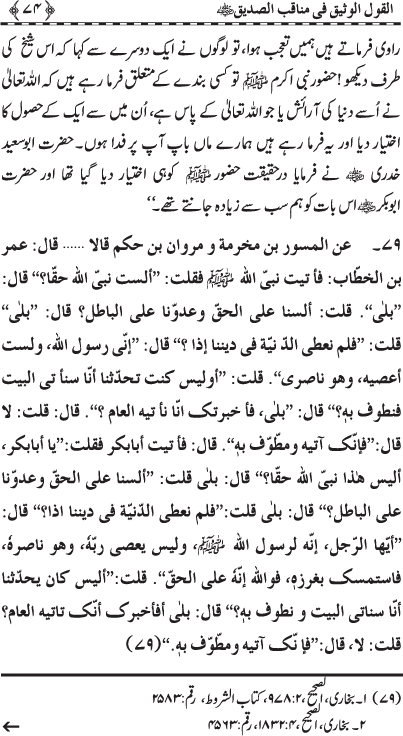 القول الوثیق فی مناقب الصدیق ﷺ ﴿ ۷۴ ﴾
راوی فرماتے ہیں ہمیں تعجب ہوا، تو لوگوں نے ایک دوسرے سے کہا کہ اس شیخ کی
طرف دیکھو! حضور نبی اکرم ﷺ تو کسی بندے کے متعلق فرما رہے ہیں کہ اللہ تعالیٰ
نے اُسے دنیا کی آرائش یا جو اللہ تعالیٰ کے پاس ہے، اُن میں سے ایک کے حصول کا
اختیار دیا اور یہ فرما رہے ہیں ہمارے ماں باپ آپ پر فدا ہوں۔ حضرت ابوسعید
خدری ﷺ نے فرمایا درحقیقت حضور ﷺ کو ہی اختیار دیا گیا تھا اور حضرت
ابوبکر ﷺ اس بات کو ہم سب سے زیادہ جانتے تھے۔‘‘
۷۹۔ عن المسور بن مخرمة و مروان بن حکم قالا ...... قال: عمر
بن الخطّاب: فأ تیت نبیّ الله ﷺ فقلت: ’’ألست نبیّ الله حقّا؟‘‘ قال:
’’بلٰی‘‘. قلت: ألسنا علی الحقّ وعدوّنا علی الباطل؟ قال: ’’بلٰی‘‘
قلت: ’’فلم نعطی الدّنیّة فی دیننا إذا ؟‘‘ قال: ’’إنّی رسول الله، ولست
أعصیه، وهو ناصری‘‘. قلت: ’’أولیس کنت تحدّثنا أنّا سنأ تی البیت
فنطوف بهٖ؟‘‘ قال: ’’بلٰی، فأ خبرتک انّا نأ تیه العام ؟‘‘. قال: قلت: لا
قال:’’فإنّک آتیه ومطّوّف بهٖ‘‘. قال: فأ تیت أبابکر فقلت:’’یا أبابکر،
ألیس هٰذا نبیّ الله حقّا؟‘‘ قال: بلٰی قلت: ’’ألسنا علی الحقّ وعدوّنا
علی الباطل؟‘‘ قال: بلٰی قلت:’’فلم نعطی الدّنیّة فی دیننا اذا؟‘‘ قال:
’’أیّها الرّجل، إنّه لرسول الله ﷺ، ولیس یعصی ربّهٗ، وهو ناصرهٗ،
فاستمسک بغرزهٖ، فوالله إنّهٗ علی الحقّ‘‘. قلت:’’ألیس کان یحدّثنا
أنّا سناتی البیت و نطوف بهٖ؟‘‘ قال: بلٰی أفأخبرک أنّک تاتیه العام؟
قلت: لا، قال:’’فإ نّک آتیه ومطّوّف بهٖ.‘‘(۷۹)
(۷۹) ۱۔ بخاری، الصحیح، ۲:۹۷۸، کتاب الشروط، رقم: ۲۵۸۳
۲۔ بخاری، الصحیح، ۴:۱۸۳۲، رقم: ۴۵۶۳